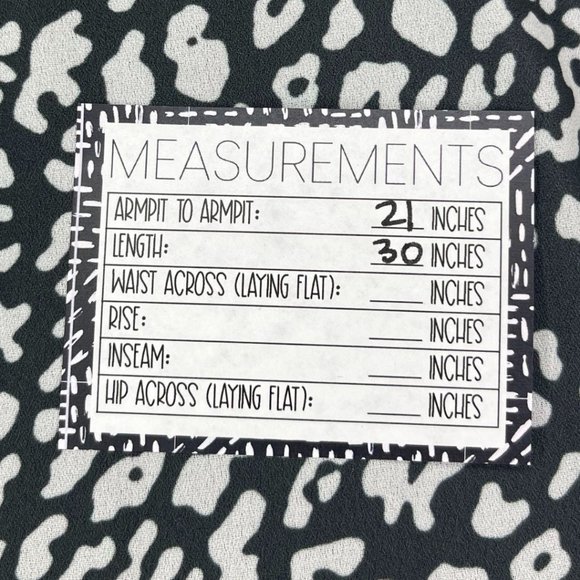 MEASUREMENTS
ARMPIT TO ARMPIT: 21 INCHES
LENGTH: 30 INCHES
WAIST ACROSS (LAYING FLAT): ____ INCHES
RISE: ____ INCHES
INSEAM: ____ INCHES
HIP ACROSS (LAYING FLAT): ____ INCHES